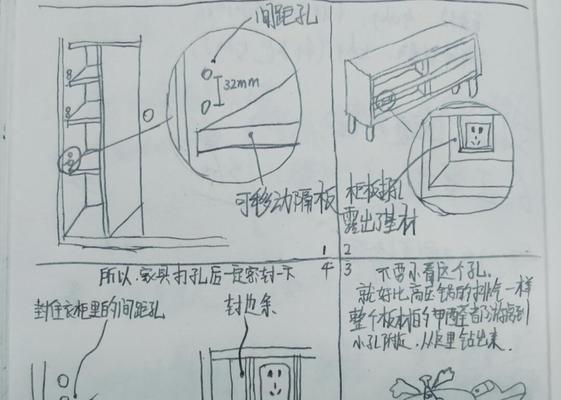 间距孔
32mm
可移动隔板
1
柜板打孔
露出了基材
2
3
不要小看这个孔.
就好比高压锅的排气一样
整个板材的甲醛都游离到
小孔附近. 从这里钻出来.
4
所以.家具打孔后一定密封一下
封住衣柜里的间距孔
封边条